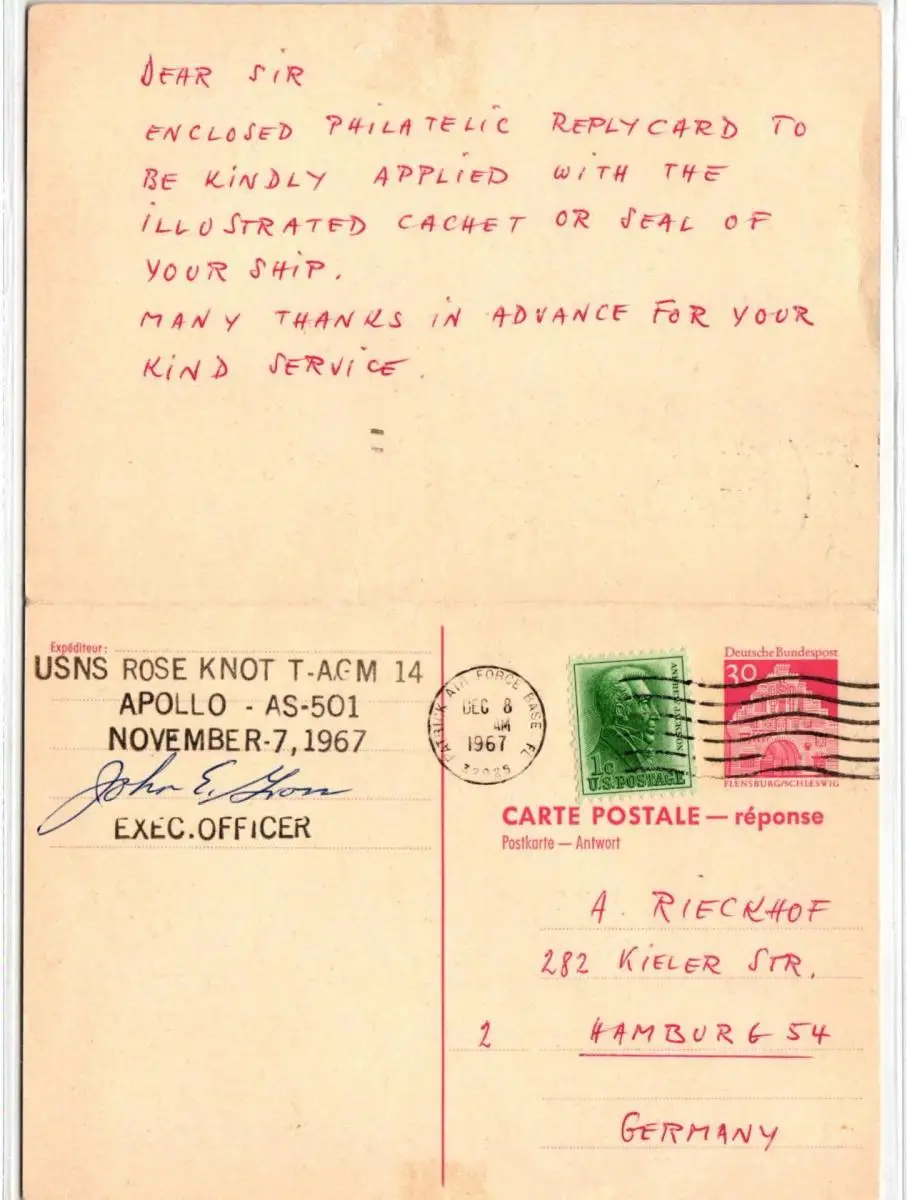 DEAR SIR
ENCLOSED PHILATELIC REPLYCARD TO
BE KINDLY APPLIED WITH THE
ILLUSTRATED CACHET OR SEAL OF
YOUR SHIP.
MANY THANKS IN ADVANCE FOR YOUR
KIND SERVICE.
Expéditeur:
USNS ROSE KNOT T-AGM 14
APOLLO - AS-501
NOVEMBER-7,1967
John E.
EXEC.OFFICER
PATRICK AIR FORCE BASE FL
DEC 8
AM
1967
32925
ANDREW JACKSON
1c
U.S.POSTAGE
Deutsche Bundespost
30
FLENSBURG/SCHLESWIG
CARTE POSTALE — réponse
Postkarte — Antwort
A. RIECKHOF
282 KIELER STR.
2 HAMBURG 54
GERMANY